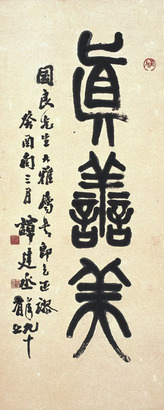 真善美
國良先生大雅屬書即乞正璨
癸酉開三月 譚建丞
年九十